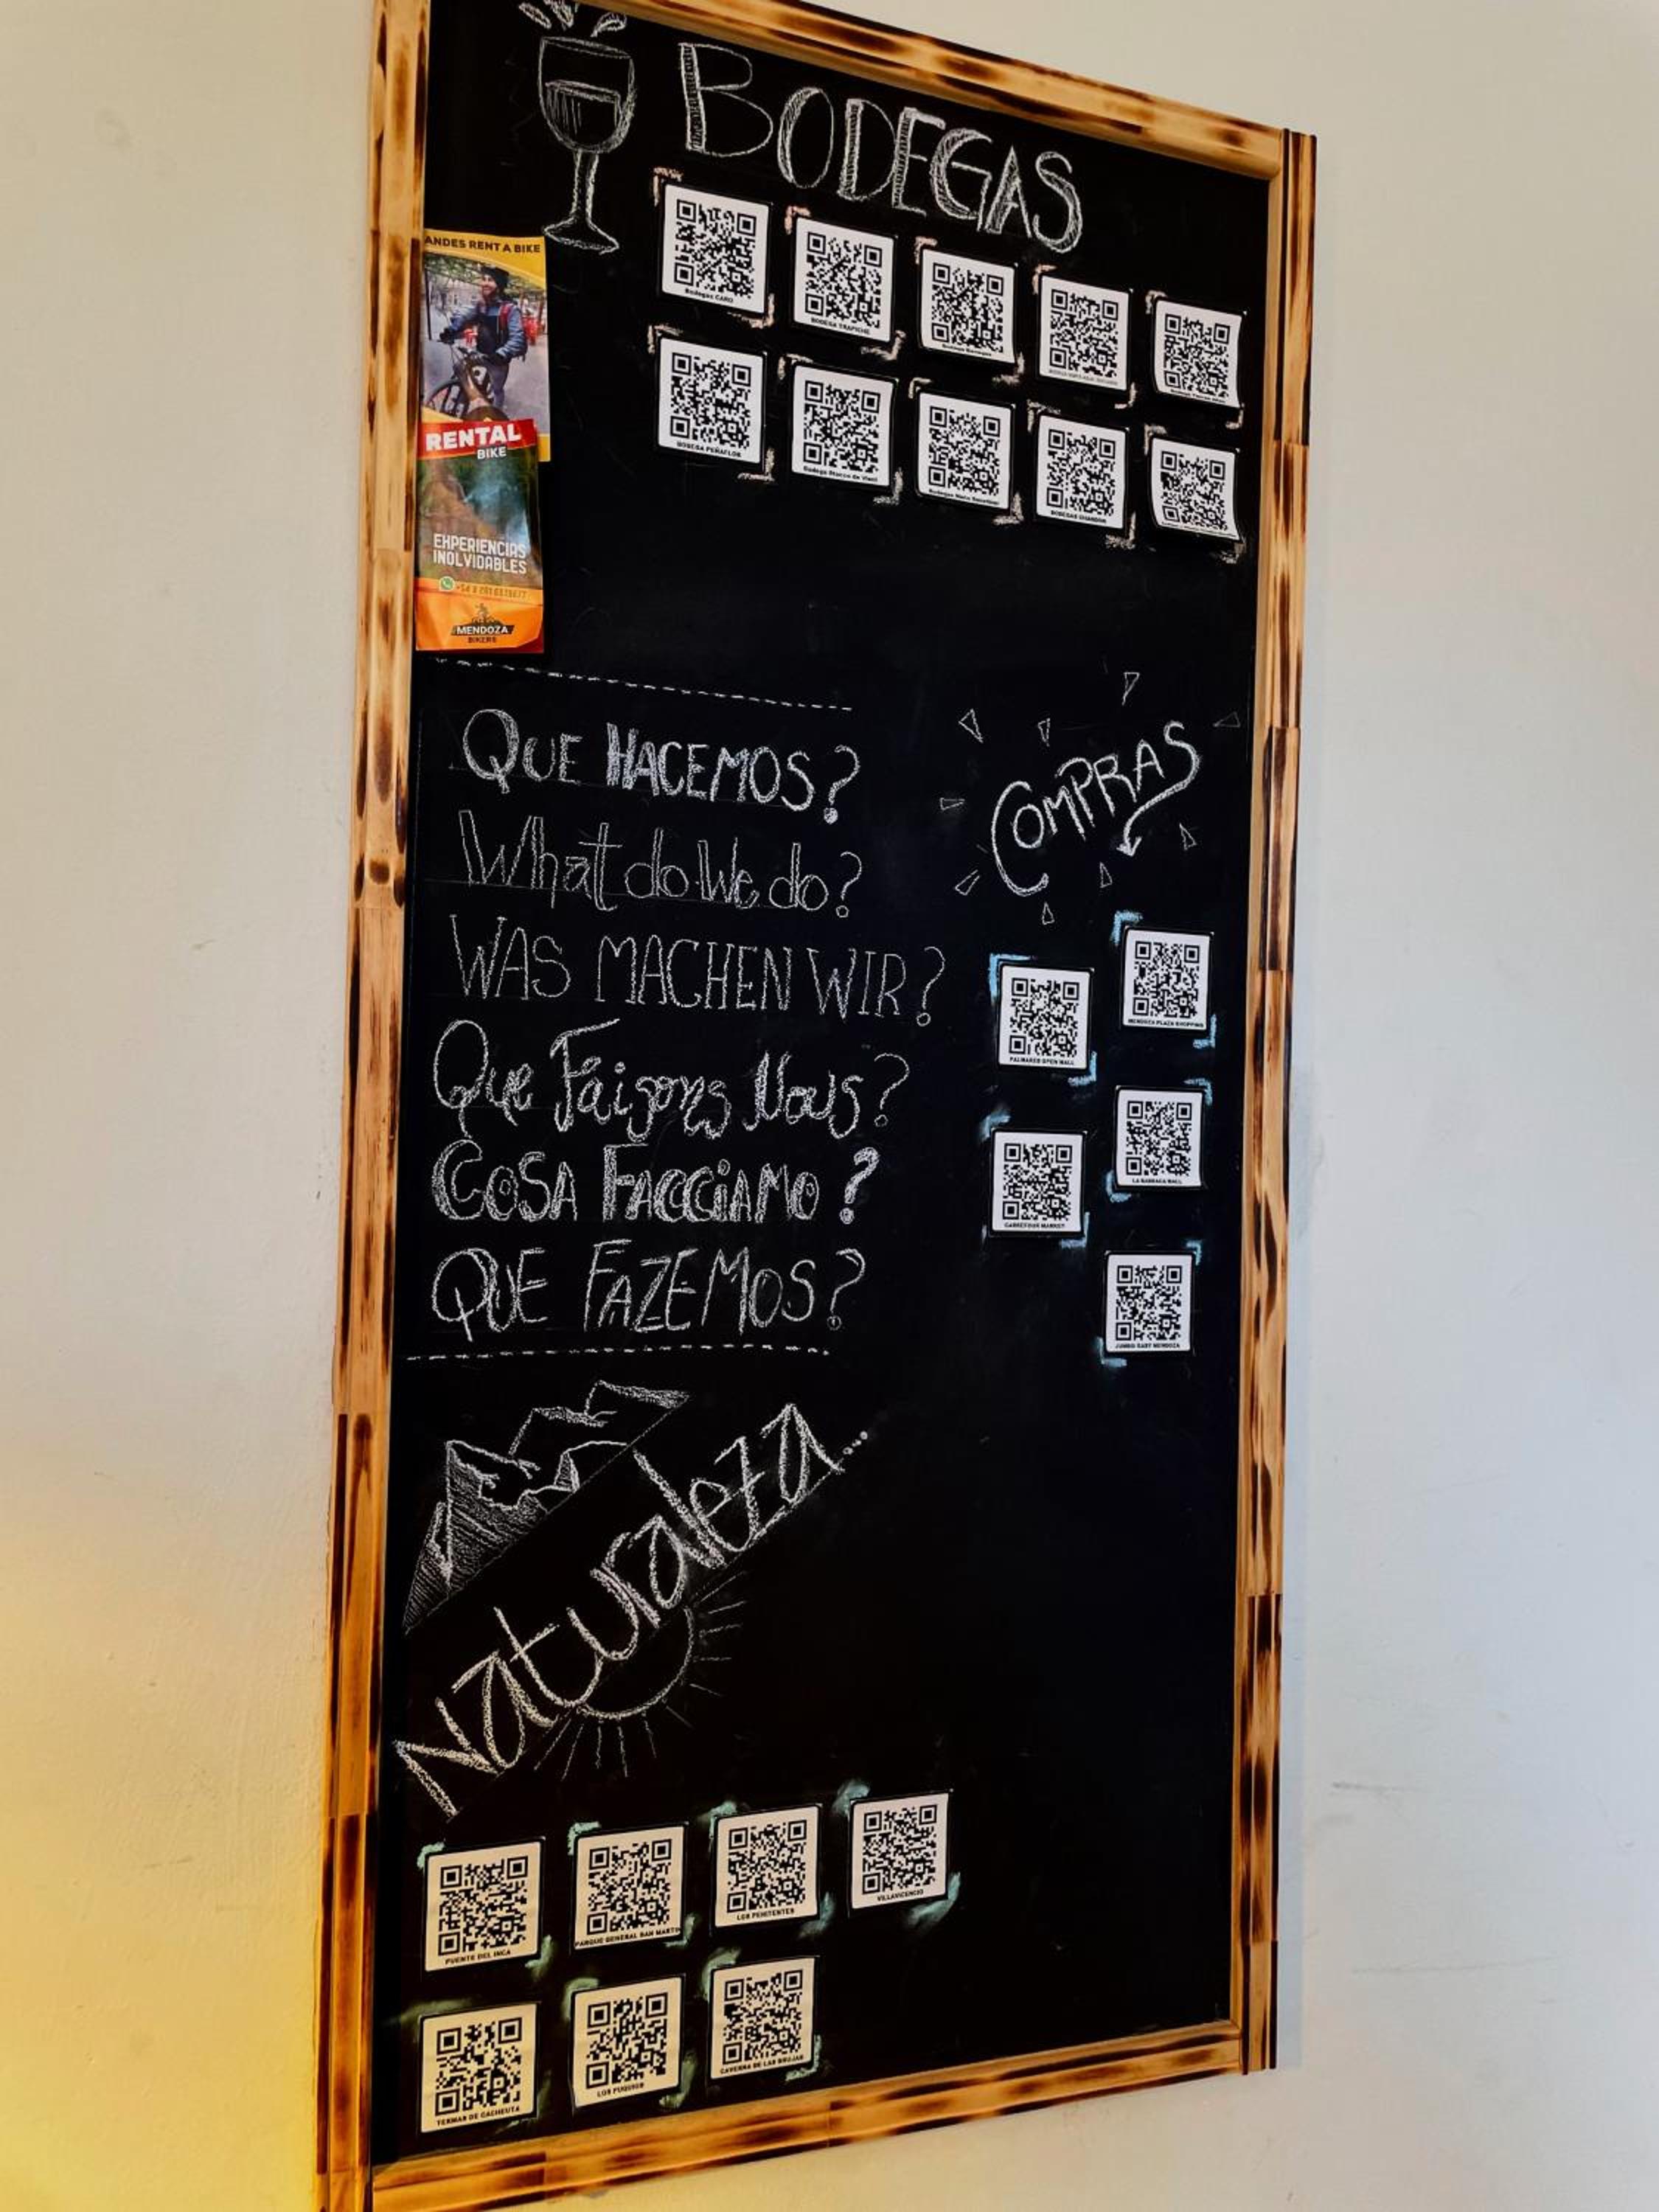 BODEGAS
Bodegas CARO
BODEGA TRAPICHE
BODEGA PEÑAFLOR
BODEGAS CHANDON
ANDES RENT A BIKE
RENTAL
BIKE
EXPERIENCIAS
INOLVIDABLES
MENDOZA
BIKERS
QUE HACEMOS?
What do We do?
WAS MACHEN WIR?
Que Faisons Nous?
COSA FACCIAMO?
QUE FAZEMOS?
COMPRAS
MENDOZA PLAZA SHOPPING
PALMARES OPEN MALL
LA BARRACA MALL
CARREFOUR MARKET
JUMBO EASY MENDOZA
Naturaleza...
PUENTE DEL INCA
PARQUE GENERAL SAN MARTIN
LOS PENITENTES
VILLAVICENCIO
TERMAS DE CACHEUTA
LOS PUQUIOS
CAVERNA DE LAS BRUJAS